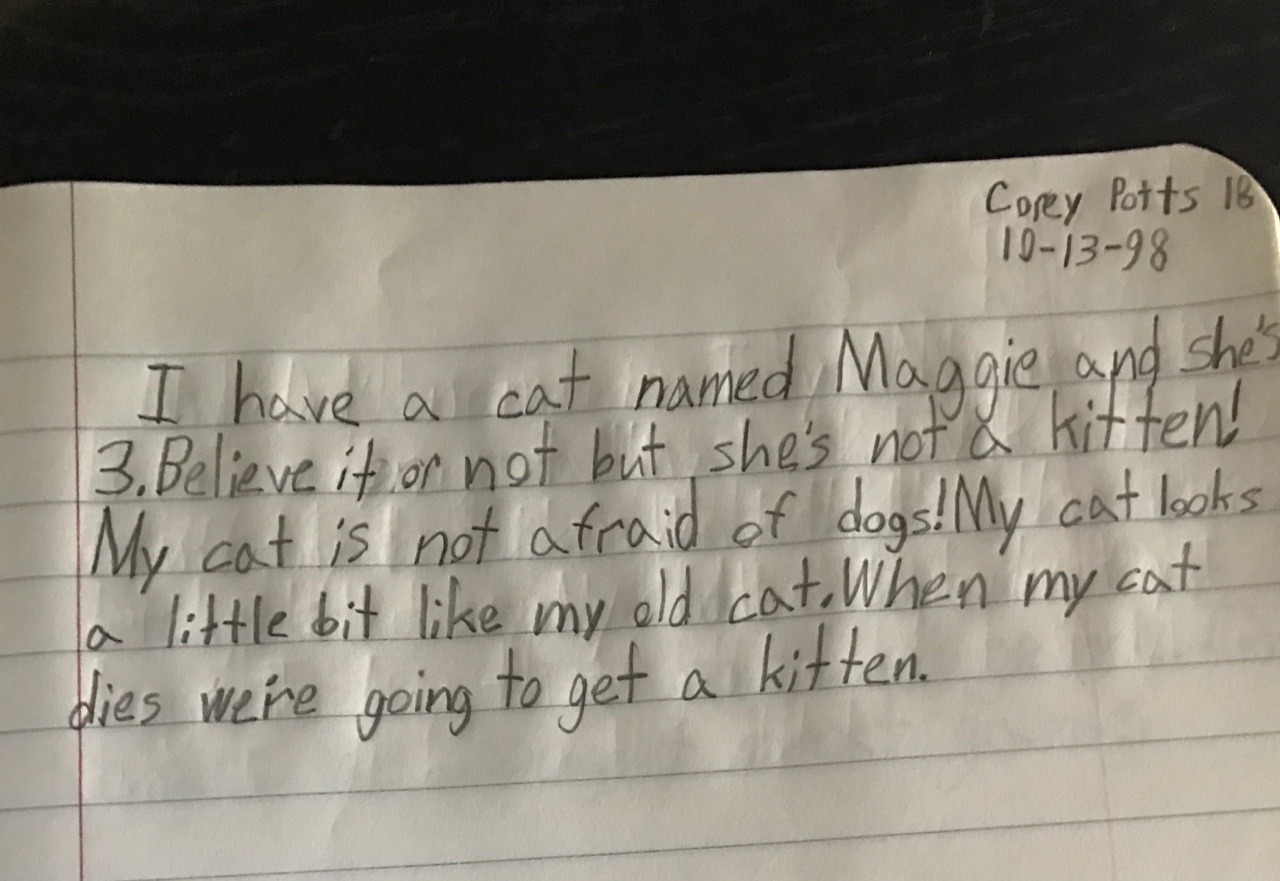 Corey Potts 18
10-13-98
I have a cat named Maggie and she's
3. Believe it or not but she's not a kitten!
My cat is not afraid of dogs! My cat looks
a little bit like my old cat. When my cat
dies we're going to get a kitten.